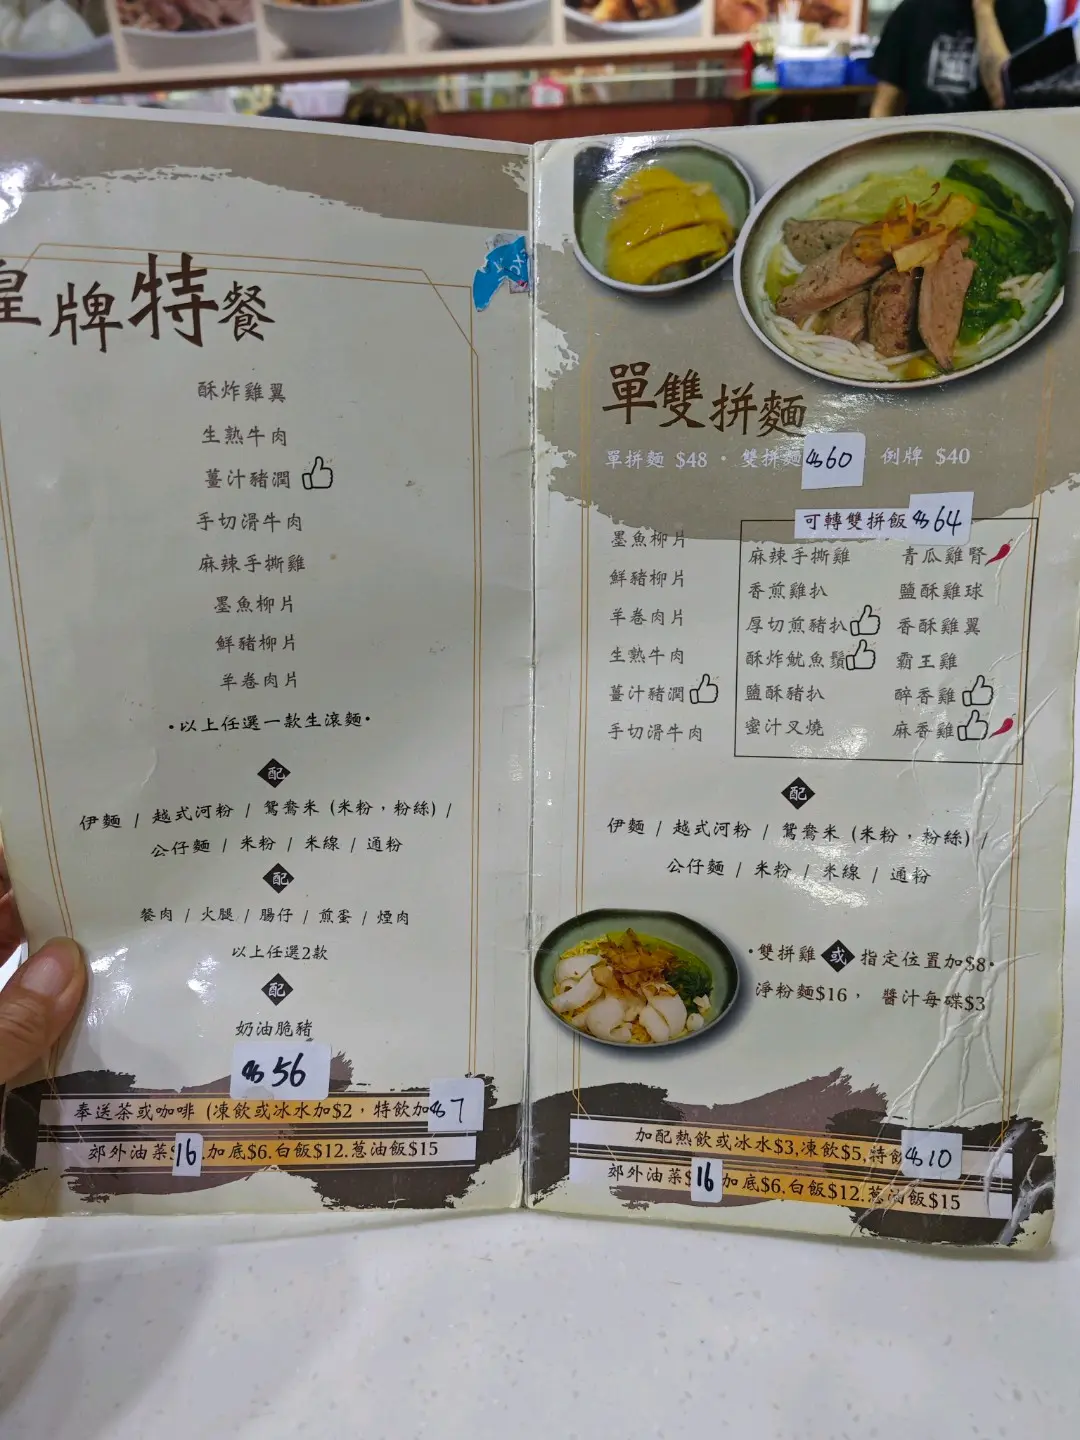 皇牌特餐
酥炸雞翼
生熟牛肉
薑汁豬潤
手切滑牛肉
麻辣手撕雞
墨魚柳片
鮮豬柳片
羊卷肉片
•以上任選一款生滾麵•
配
伊麵 / 越式河粉 / 鴛鴦米 (米粉，粉絲) /
公仔麵 / 米粉 / 米線 / 通粉
配
餐肉 / 火腿 / 腸仔 / 煎蛋 / 煙肉
以上任選2款
配
奶油脆豬
$56
奉送茶或咖啡 (凍飲或冰水加$2，特飲加$7
郊外油菜$16.加底$6.白飯$12.葱油飯$15
單雙拼麵
單拼麵 $48 · 雙拼麵$60 例牌 $40
可轉雙拼飯$64
墨魚柳片
鮮豬柳片
羊卷肉片
生熟牛肉
薑汁豬潤
手切滑牛肉
麻辣手撕雞 青瓜雞腎
香煎雞扒 鹽酥雞球
厚切煎豬扒 香酥雞翼
酥炸魷魚鬚 霸王雞
鹽酥豬扒 醉香雞
蜜汁叉燒 麻香雞
配
伊麵 / 越式河粉 / 鴛鴦米 (米粉，粉絲) /
公仔麵 / 米粉 / 米線 / 通粉
•雙拼雞 或 指定位置加$8•
淨粉麵$16， 醬汁每碟$3
加配熱飲或冰水$3,凍飲$5,特飲$10
郊外油菜$16加底$6.白飯$12.葱油飯$15